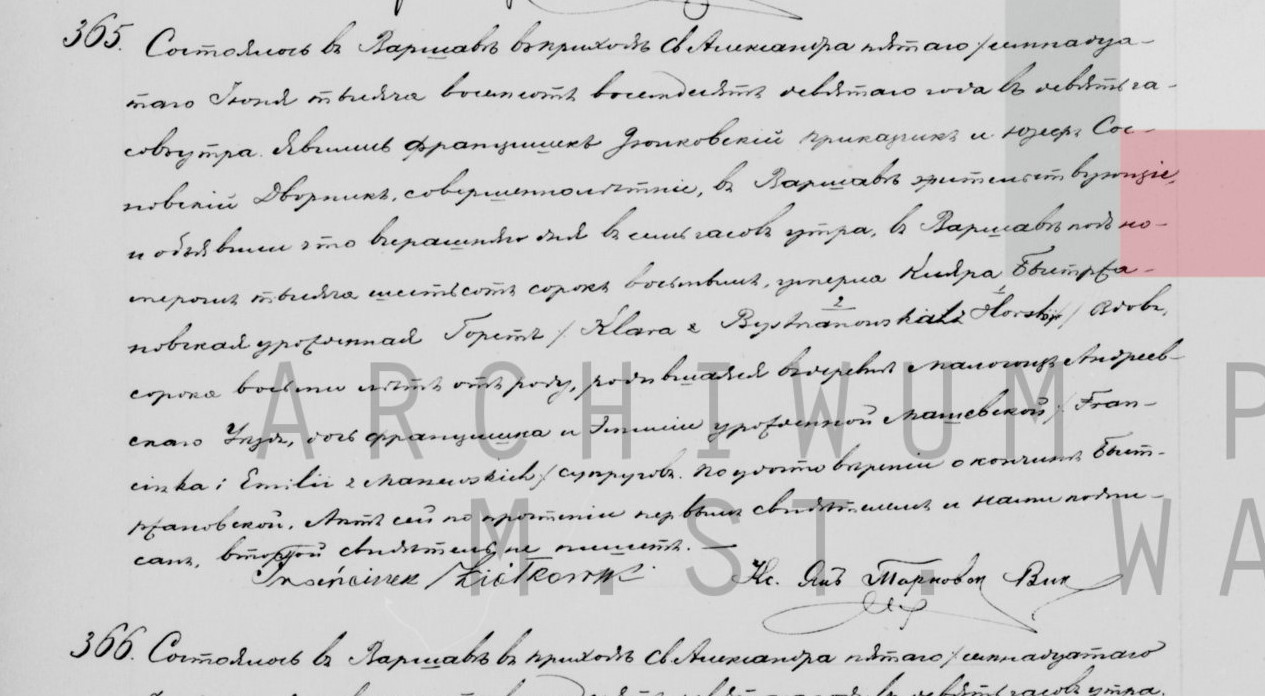 365. Состоялось въ Варшавѣ въ приходѣ Св Александра пятаго / семнадца-
таго Іюня тысяча восемсотъ восемдесятъ девятаго года въ девять ча-
совъ утра. Явились Францишекъ прикащикъ и Юзефъ Сос-
новскій Дворникъ, совершеннолѣтніе, въ Варшавѣ жительствующіе,
и объявили что вчерашняго дня въ семь часовъ утра, въ Варшавѣ подъ но-
меромъ тысяча шестьсотъ сорокъ восьмымъ, умерла Кляра Быстржа-
новская урожденная / Klara z Bystrzanowska / вдова,
сорока восьми лѣтъ отъ роду, родившаяся въ деревнѣ Андреев-
скаго Уѣзда, дочь Францишка и Эмиліи урожденной / Fran-
ciszka i Emilii z / супруговъ. По удостовѣреніи о кончинѣ Быст-
ржановской, Актъ сей по прочтеніи первымъ свидѣтелемъ и нами подпи-
санъ, второй свидѣтель не пишетъ. —
Franciszek Кс. Янъ Вик
366. Состоялось въ Варшавѣ въ приходѣ Св Александра пятаго / семнадцатаго
въ девять часовъ утра.
ARCHIWUM P
M. ST. WA